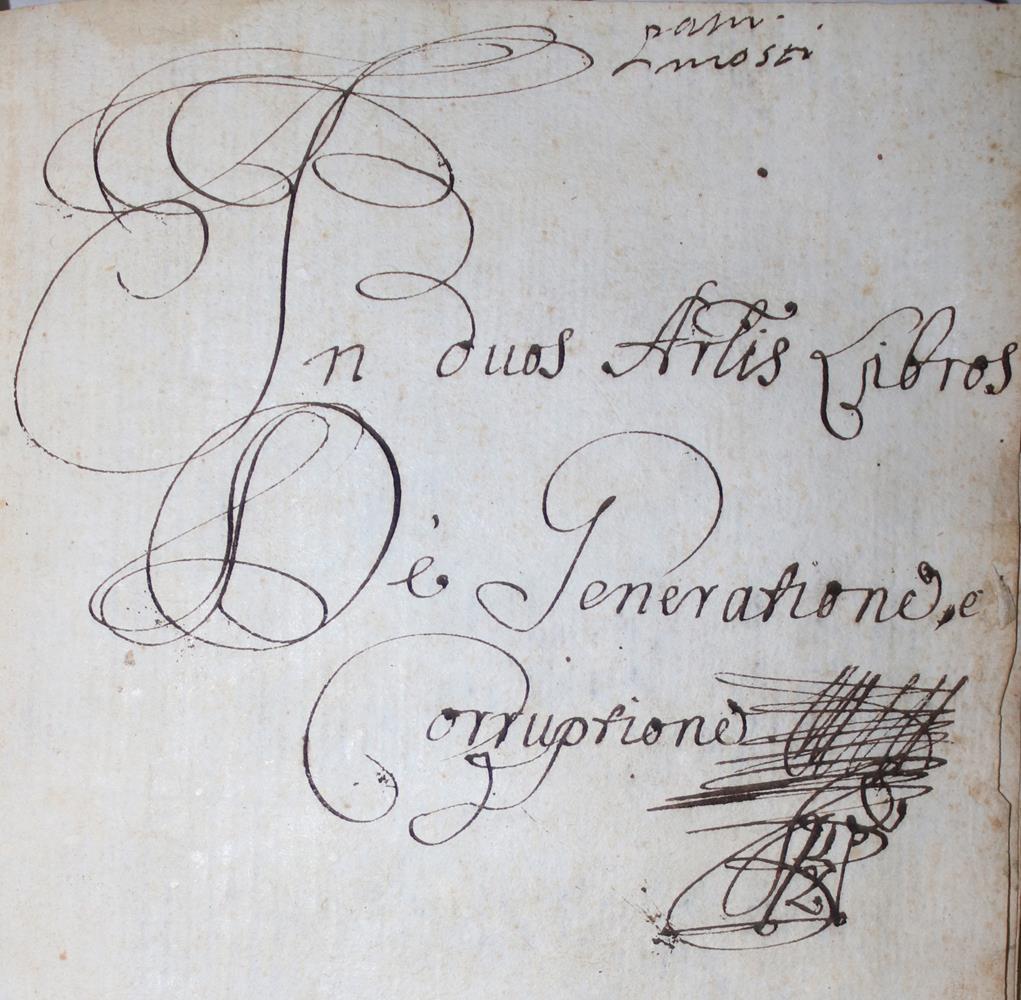 mosti
In duos Artis Libros
De Generatione, e
Corruptione